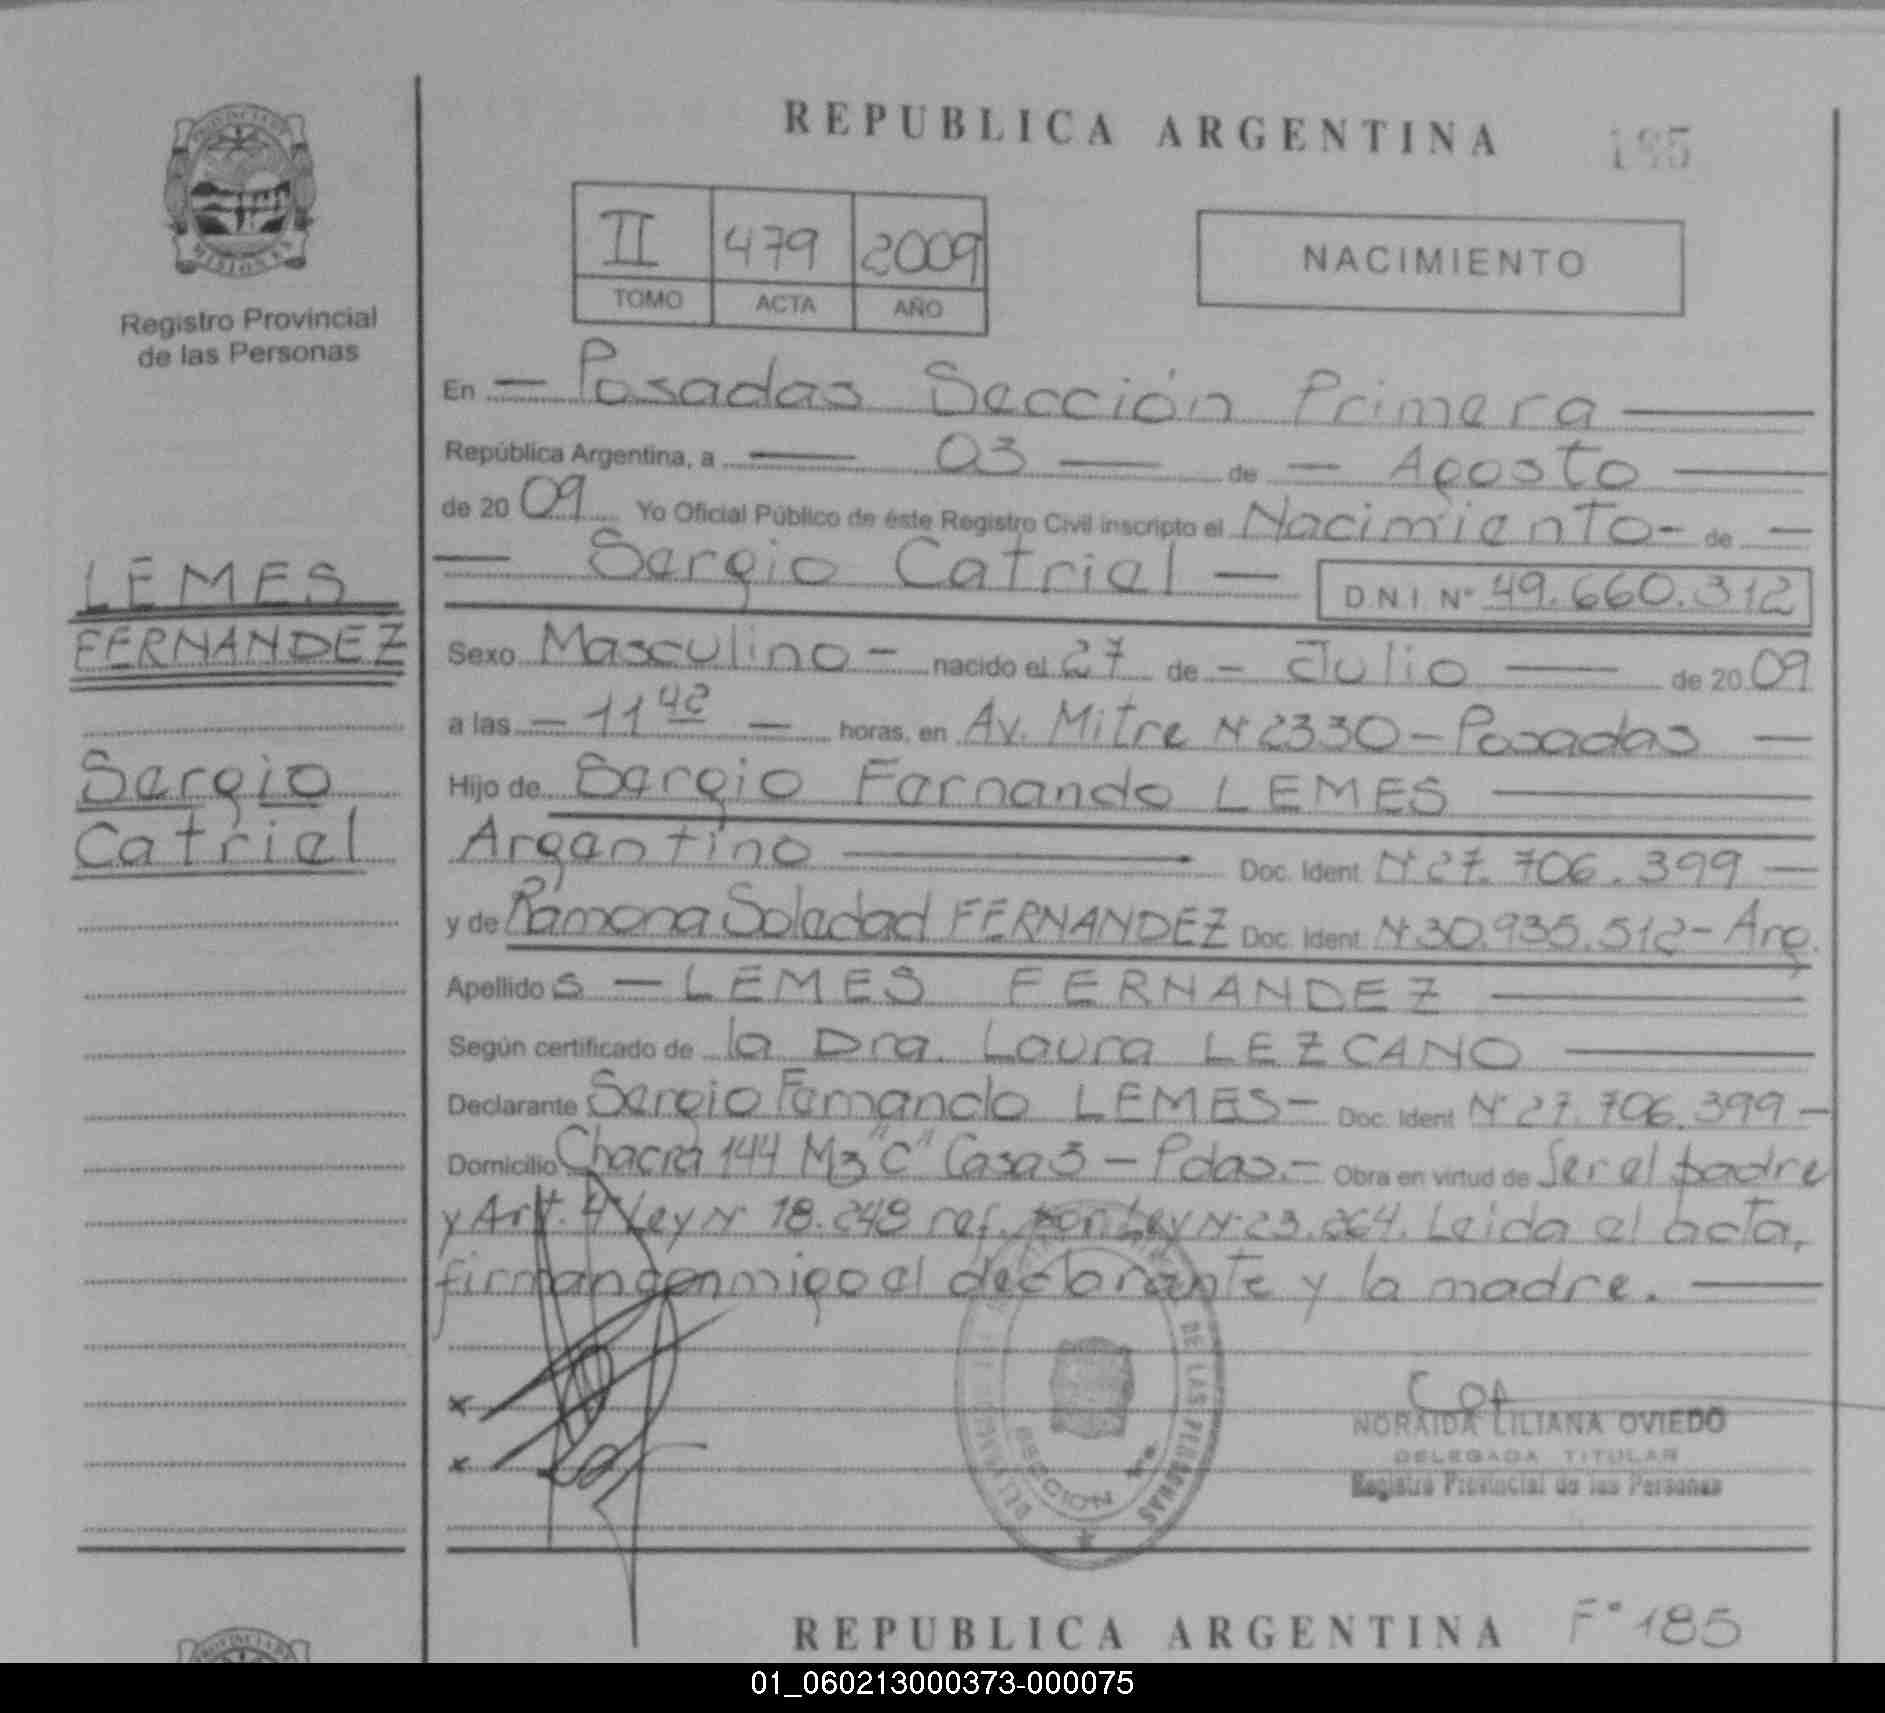 REPUBLICA ARGENTINA
185
PROVINCIA DE
MISIONES
Registro Provincial
de las Personas
II 479 2009
TOMO ACTA AÑO
NACIMIENTO
En — Posadas Sección Primera —
República Argentina, a — 03 — de — Agosto —
de 2009 Yo Oficial Público de éste Registro Civil inscripto el Nacimiento - de —
— Sergio Catriel — D.N.I. Nº 49.660.312
LEMES
FERNANDEZ
Sergio
Catriel
Sexo Masculino - nacido el 27 de - Julio — de 2009
a las — 11 42 — horas, en Av. Mitre Nº 2330 - Posadas —
Hijo de Sergio Fernando LEMES —
Argentino — Doc. Ident. Nº 27.706.399 —
y de Ramona Soledad FERNANDEZ Doc. Ident. Nº 30.935.512 - Arg.
Apellidos — LEMES FERNANDEZ —
Según certificado de la Dra. Laura LEZCANO —
Declarante Sergio Fernando LEMES - Doc. Ident. Nº 27.706.399 -
Domicilio Chacra 144 Mz "C" Casa 3 - Pdas. - Obra en virtud de Ser el padre
y Art. 4 Ley Nº 18.248 ref. por Ley Nº 23.264. Leida el acta,
firman conmigo el declarante y la madre. —
x
x
DE LAS PERSONAS
SECCION
NORAIDA LILIANA OVIEDO
DELEGADA TITULAR
Registro Provincial de las Personas
REPUBLICA ARGENTINA Fº 185
PROVINCIA
01_060213000373-000075